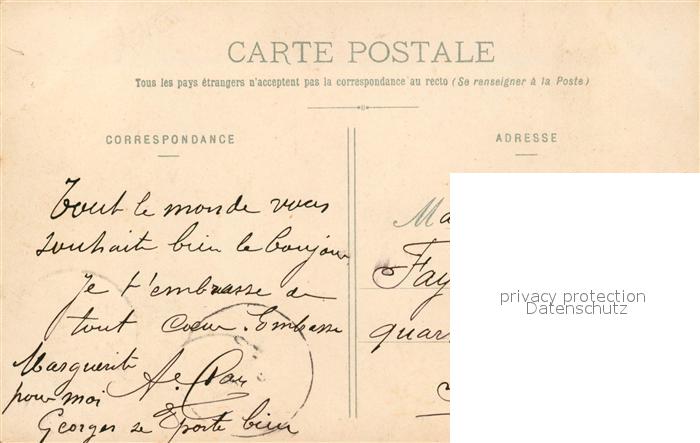 CARTE POSTALE
Tous les pays étrangers n'acceptent pas la correspondance au recto (Se renseigner à la Poste)
CORRESPONDANCE
Tout le monde vous
souhaite bien le bonjour
Je t'embrasse de
tout Coeur. Embrasse
Marguerite
pour moi
Georges se porte bien
ADRESSE
Ma
Fay
quar
privacy protection
Datenschutz